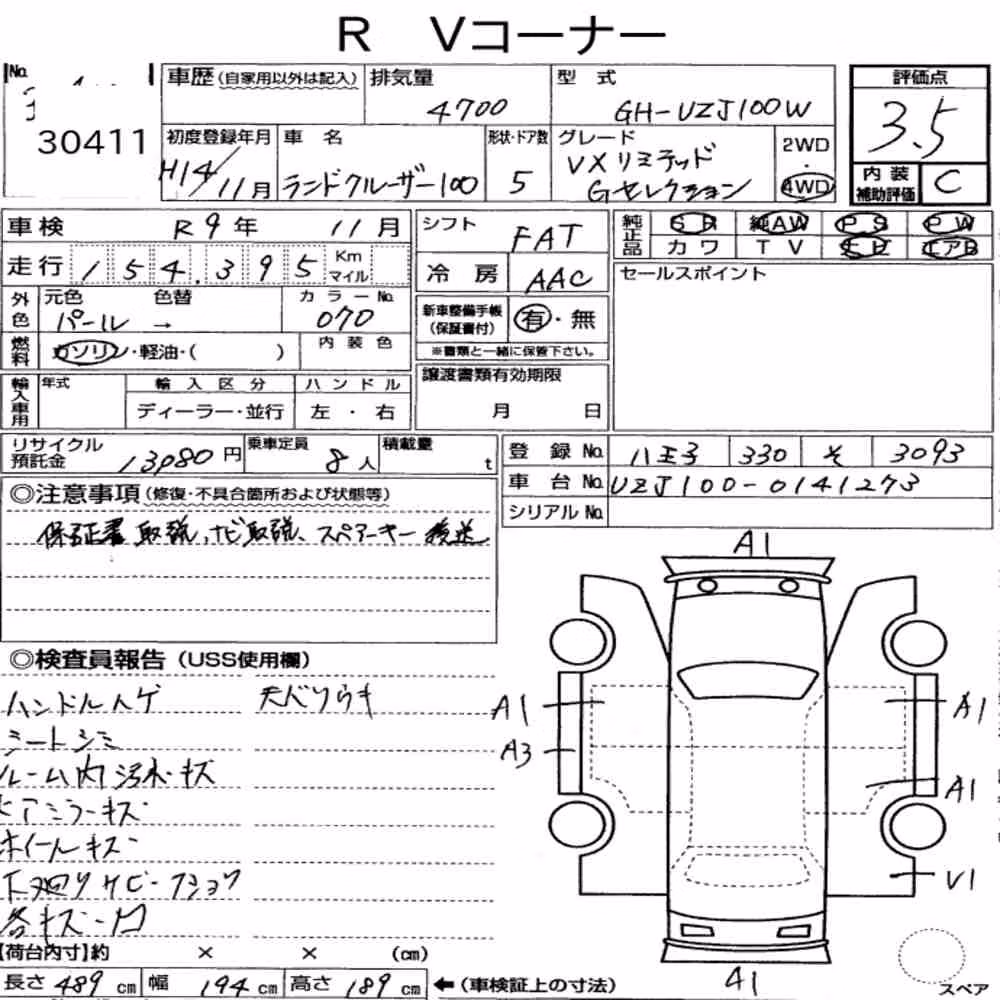 R Vコーナー
No.
30411
車歴 (自家用以外は記入)
排気量
4700
型式
GH-UZJ100W
評価点
3.5
初度登録年月
H14/11月
車名
ランドクルーザー100
形状・ドア数
5
グレード
VXリミテッド
Gセレクション
2WD
4WD
内装
補助評価
C
車検 R9年 11月
シフト
FAT
純正品
SR 純AW PS PW
カワ TV ナビ エアB
走行 154,395 Km マイル
冷房
AAC
セールスポイント
外色
元色 色替 カラーNo.
パール → 070
新車整備手帳
(保証書付)
有・無
※書類と一緒に保管下さい。
燃料
ガソリン・軽油・( )
内装色
輸入車用
年式
輸入区分
ハンドル
ディーラー・並行
左・右
譲渡書類有効期限
月 日
リサイクル
預託金
13,080円
乗車定員
8人
積載量
t
登録No.
八王子 330 そ 3093
車台No.
UZJ100-0141273
シリアルNo.
◎注意事項 (修復・不具合箇所および状態等)
保証書 取説、ナビ取説、スペアーキー 後送
◎検査員報告 (USS使用欄)
ハンドルハゲ 天バリウキ
シートシミ
ルーム内汚れ・キズ
ドアミラーキズ
ホイールキズ
下廻りサビ・フショク
各キズ・凹
A1
A1
A3
A1
A1
V1
A1
【荷台内寸】約 × × (cm)
長さ 489 cm 幅 194 cm 高さ 189 cm ←(車検証上の寸法)
スペア